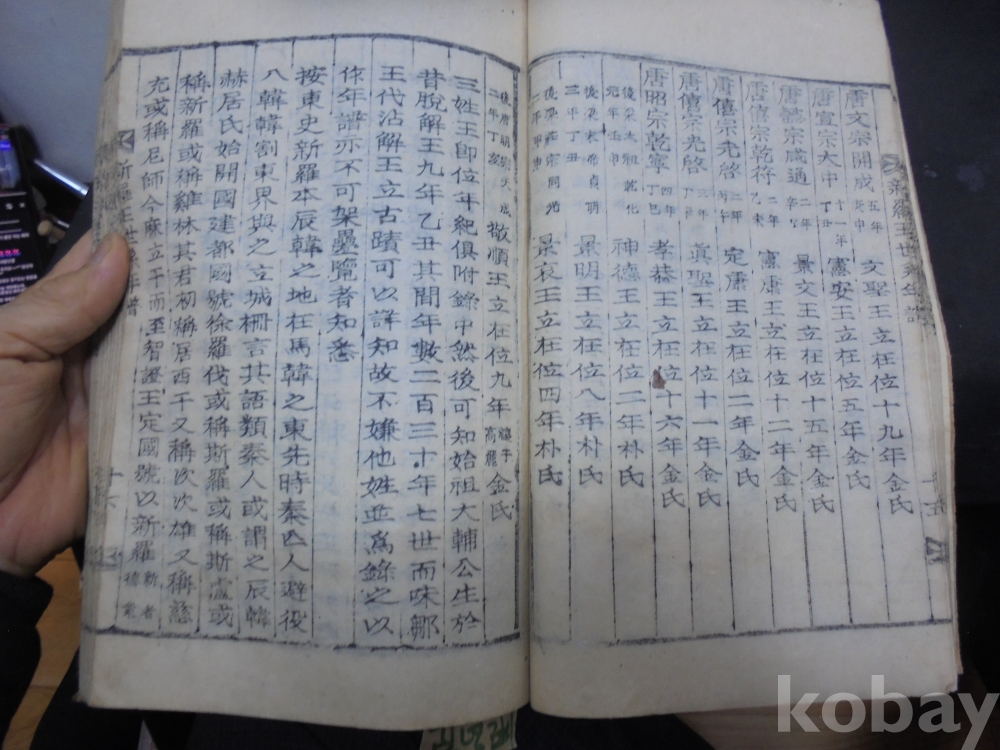 唐文宗開成五年庚申文聖王立在位十九年金氏
唐宣宗大中十一年丁丑憲安王立在位五年金氏
唐懿宗咸通二年辛巳景文王立在位十五年金氏
唐僖宗乾符二年乙未憲康王立在位十二年金氏
唐僖宗光啓二年丙午定康王立在位二年金氏
唐僖宗光啓三年眞聖王立在位十一年金氏
唐昭宗乾寧四年丁巳孝恭王立在位十六年金氏
後梁太祖乾化元年神德王立在位二年朴氏
後梁末帝貞明三年丁丑景明王立在位八年朴氏
後唐莊宗同光二年甲申景哀王立在位四年朴氏
新羅王世系年譜
後唐明宗天成二年丁亥敬順王立在位九年讓于高麗金氏
三姓王卽位年紀俱附錄中然後可知始祖大輔公生於
昔脫解王九年乙丑其間年數二百三十年七世而味鄒
王代沾解王立古蹟可以詳知故不嫌他姓並爲錄之以
作年譜亦不可架疊覽者知悉
按東史新羅本辰韓之地在馬韓之東先時秦亾人避役
入韓韓割東界與之立城柵言其語類秦人或謂之辰韓
赫居氏始開國建都國號徐羅伐或稱斯羅或稱斯盧或
稱新羅或稱雞林其君初稱居西干又稱次次雄又稱慈
充或稱尼師今麻立干而至智證王定國號以新羅新者德業
新羅王世系年譜
十六
kobay